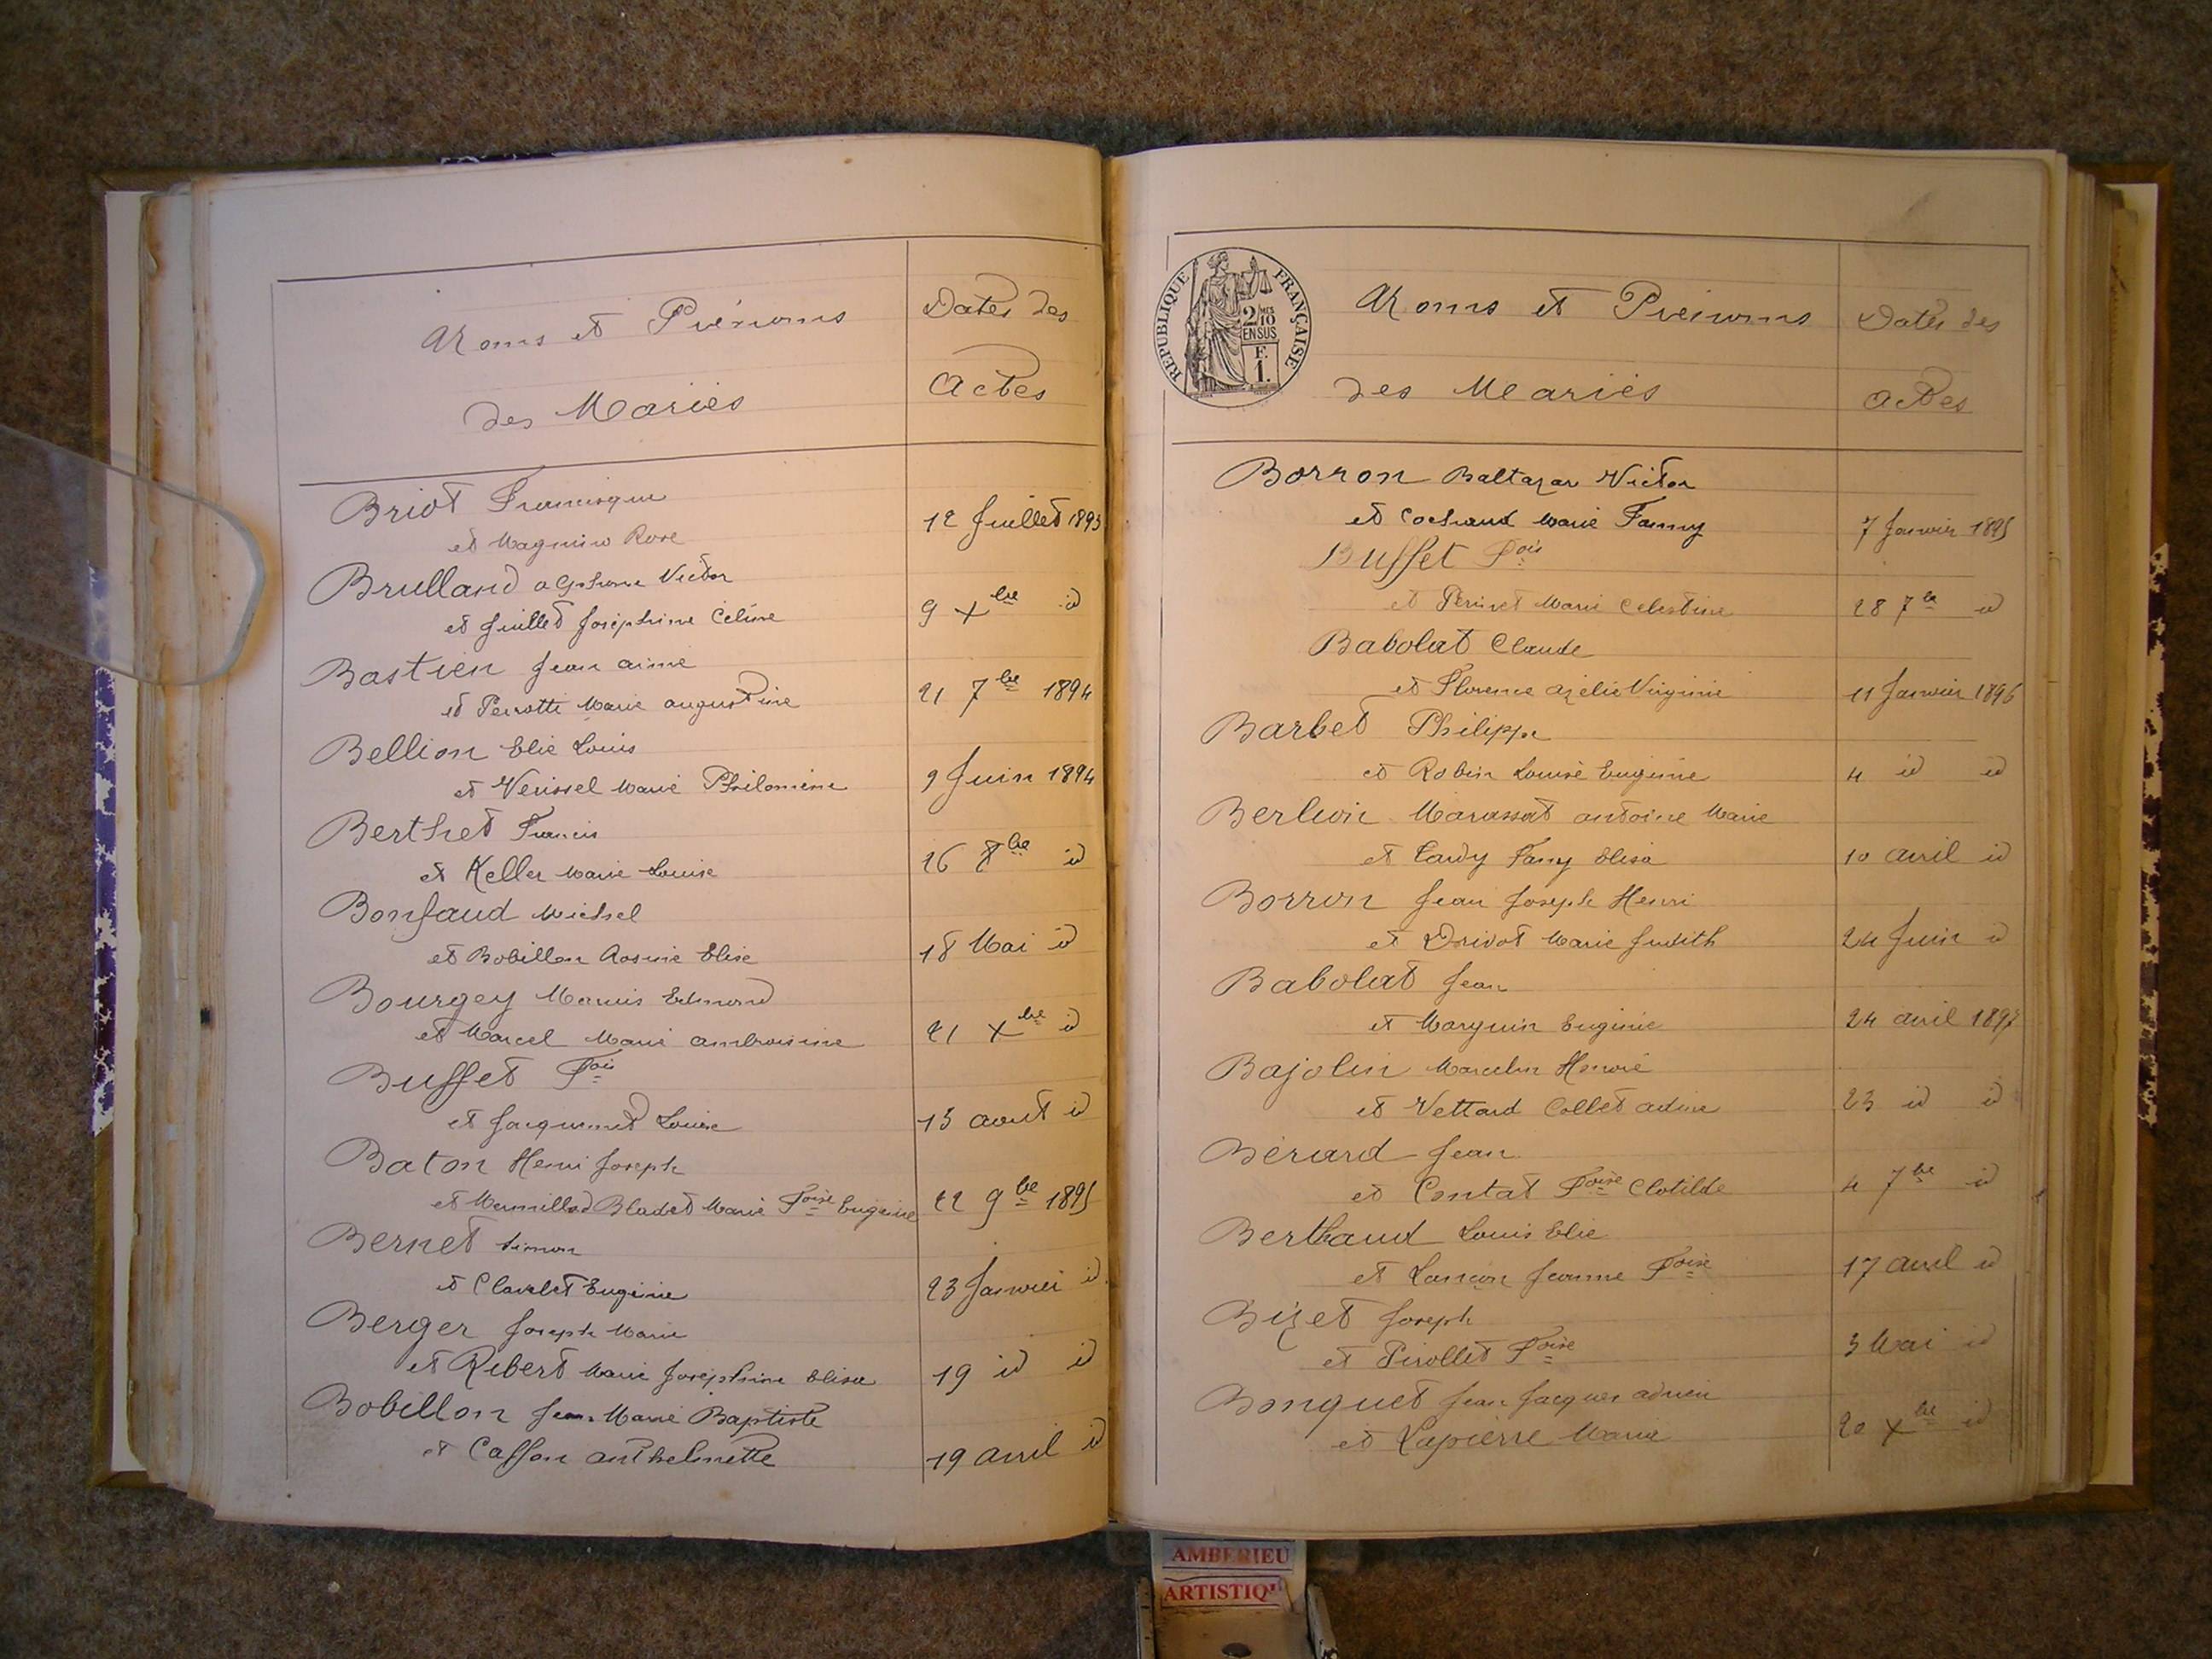 Noms et Prénoms
des Mariés
Dates des
Actes
Briot Francisque
et Magnin Rose
12 Juillet 1893
Brulland Alphonse Victor
et Juillet Joséphine Céline
9 Xbre id
Bastien Jean aimé
et Perrotti Marie augustine
21 7bre 1894
Bellion Elie Louis
et Venissel Marie Philomène
9 Juin 1894
Berthet Francis
et Keller Marie Louise
26 8bre id
Bonfaud Michel
et Bobillon Rosine Elise
18 Mai id
Bourgey Marius Edmond
et Marcel Marie ambroisine
21 Xbre id
Buffet Fois
et Jacquemet Louise
13 aout id
Baton Henri Joseph
et Mermillod Bladet Marie Foise Eugénie
22 9bre 1895
Bernet Simon
et Clavelet Eugénie
23 Janvier id
Berger Joseph Marie
et Ribert Marie Joséphine Elisa
19 id id
Bobillon Jean Marie Baptiste
et Caffon anthelmette
19 avril id
REPUBLIQUE FRANÇAISE
2/10 EN SUS
F. 1.
Noms et Prénoms
des Mariés
Dates des
Actes
Borron Baltazar Victor
et Cochand Marie Fanny
7 Janvier 1895
Buffet Fois
et Perinet Marie Célestine
28 7bre id
Babolat Claude
et Florence azélie Virginie
11 Janvier 1896
Barbet Philippe
et Robin Louise Eugénie
4 id id
Berlioz Marassat antoine Marie
et Tardy Fany Elisa
10 avril id
Borron Jean Joseph Henri
et Drivot Marie Judith
24 Juin id
Babolat Jean
et Marguin Eugénie
24 avril 1897
Bajolin Marcelin Honoré
et Vettard Collet adine
23 id id
Bérard Jean
et Contat Foise Clotilde
4 7bre id
Berthaud Louis Elie
et Lançon Jeanne Foise
17 avril id
Bizet Joseph
et Pirollet Foise
3 Mai id
Bonquet Jean Jacques adrien
et Lapierre Marie
20 Xbre id
AMBERIEU
ARTISTIQU